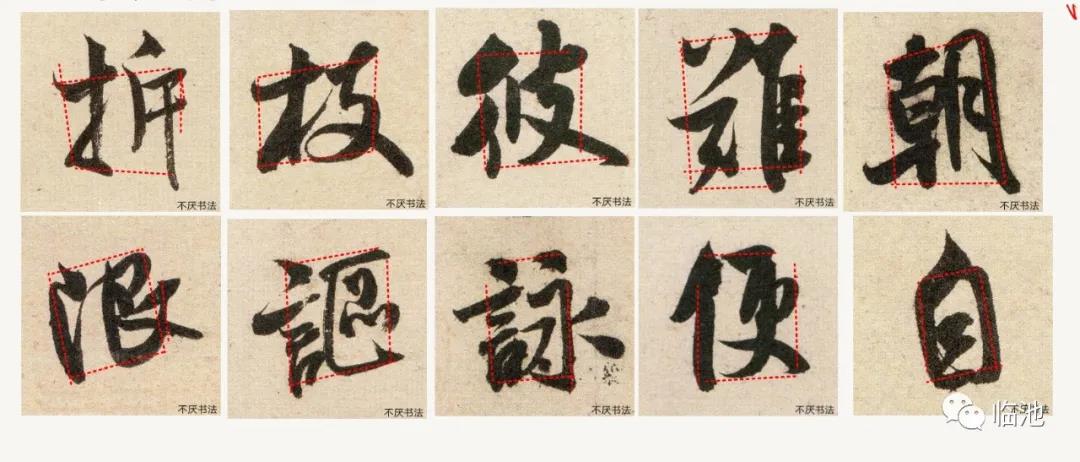 枝 彼 雖 朝
不厌书法 不厌书法 不厌书法 不厌书法 不厌书法
浪 謳 詠 便 自
不厌书法 不厌书法 不厌书法 不厌书法 不厌书法
临池